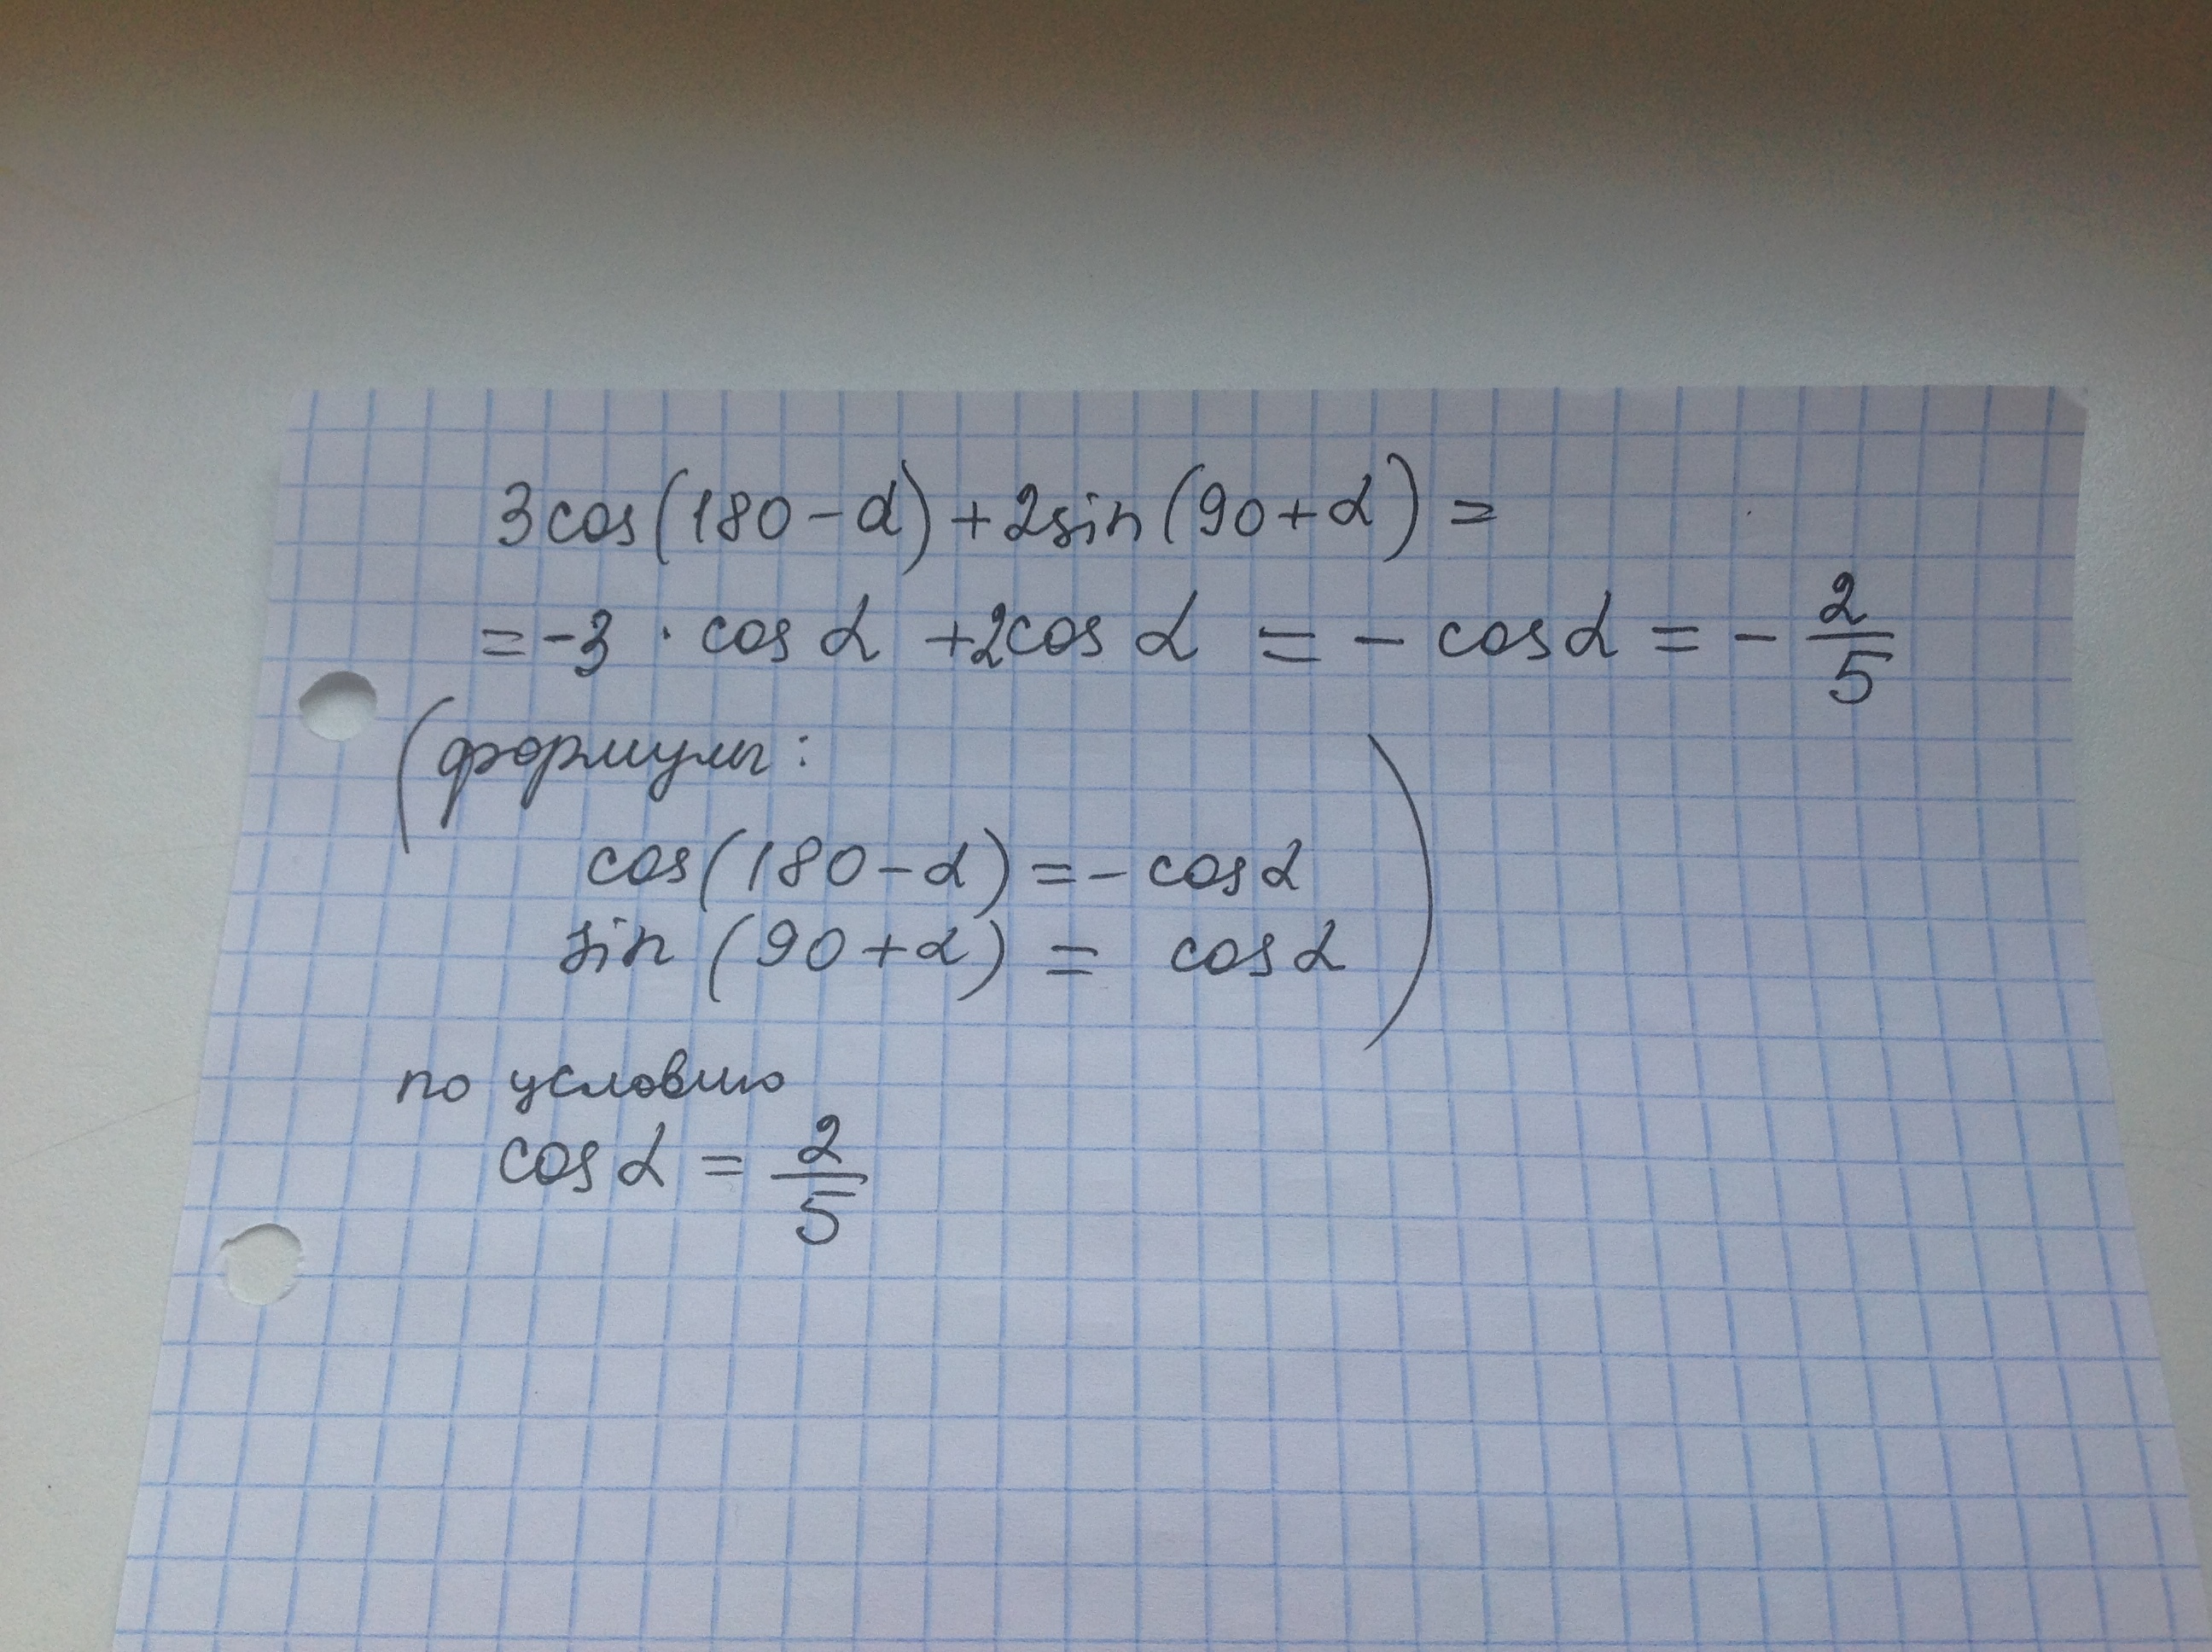 3cos(180-α)+2sin(90+α)=
=-3·cosα+2cosα=-cosα=-2/5
(формулы:
cos(180-α)=-cosα
sin(90+α)=cosα)
по условию
cosα=2/5